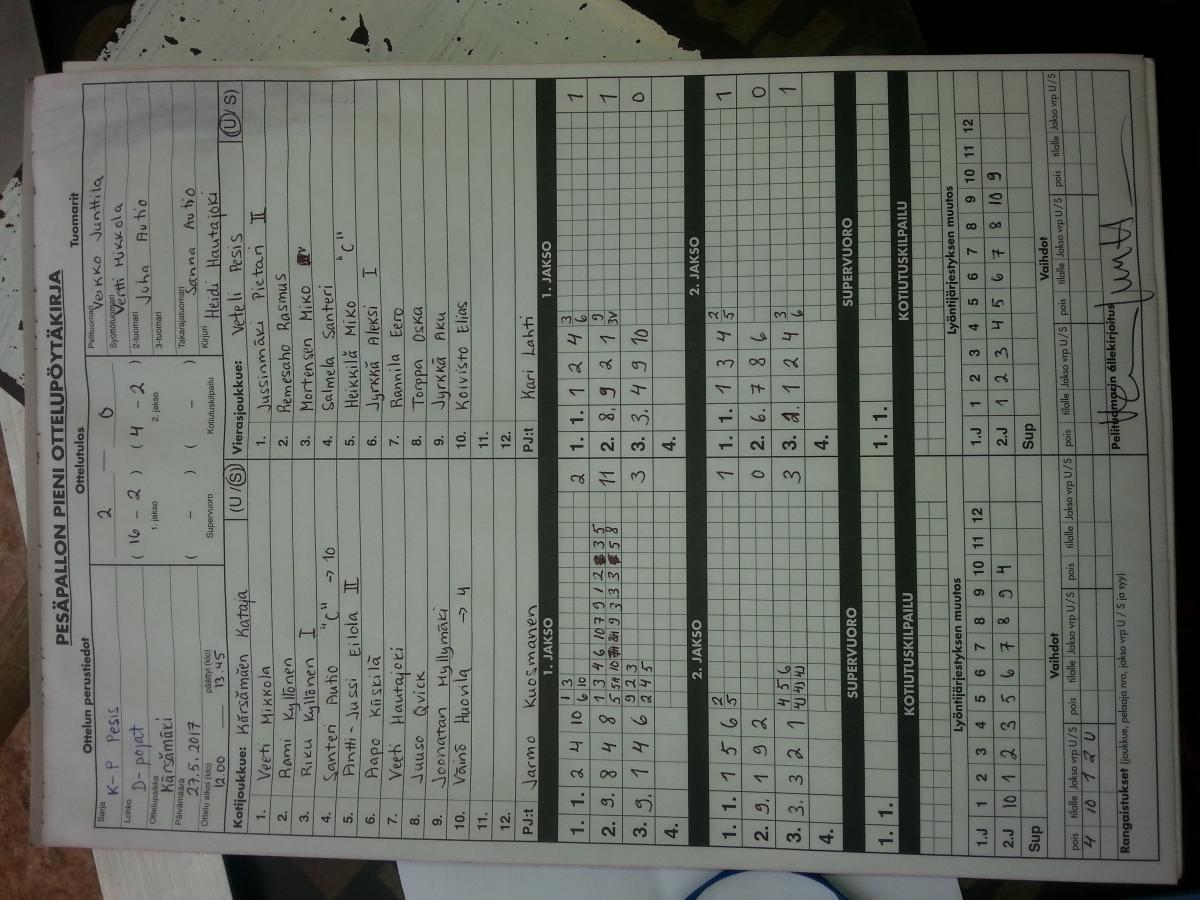 PESÄPALLON PIENI OTTELUPÖYTÄKIRJA
Ottelun perustiedot Ottelutulos Tuomarit
Sarja K-P Pesis
Lohko D-pojat
Ottelupaikka Kärsämäki
Päivämäärä 27.5.2017
Ottelu alkoi (klo) 12.00 päättyi (klo) 13.45
2 — 0
(16 - 2) (4 - 2)
1. jakso 2. jakso
( - ) ( - )
Supervuoro Kotiutuskilpailu
Pelituomari Veikko Junttila
Syöttötuomari Vertti Mikkola
2-tuomari Juha Autio
3-tuomari
Takarajatuomari Sanna Autio
Kirjuri Heidi Hautajoki
Kotijoukkue: Kärsämäen Kataja (U/S)
1. Veeti Mikkola
2. Rami Kyllönen
3. Riku Kyllönen I
4. Santeri Autio "C" → 10
5. Antti-Jussi Eilola II
6. Aapo Kiiskilä
7. Veeti Hautajoki
8. Juuso Qvick
9. Joonatan Myllymäki
10. Väinö Huovila → 4
11.
12.
PJ:t Jarmo Kuosmanen
Vierasjoukkue: Veteli Pesis (U/S)
1. Jussinmäki Pietari II
2. Remesaho Rasmus
3. Mortensen Miko
4. Salmela Santeri
5. Heikkilä Miko "C"
6. Jyrkkä Aleksi I
7. Rannila Eero
8. Torppa Oska
9. Jyrkkä Aku
10. Koivisto Elias
11.
12.
PJ:t Kari Lahti
1. JAKSO 1. JAKSO
1. 1. 2 4 10 1 3 6 10 2
2. 9. 8 4 8 11
3. 9. 1 4 6 9 2 3 2 4 5 3
4.
1. 1. 1 2 4 3 6 1
2. 8. 9 2 1 9 3V 1
3. 3. 4 9 10 0
4.
2. JAKSO 2. JAKSO
1. 1. 1 5 6 2 5 1
2. 9. 1 9 2 0
3. 3. 3 2 1 4 5 6 3
4.
1. 1. 1 3 4 2 5 1
2. 6. 7 8 6 0
3. 2. 1 2 4 3 6 1
4.
SUPERVUORO SUPERVUORO
1. 1. 1. 1.
KOTIUTUSKILPAILU KOTIUTUSKILPAILU
Lyöntijärjestyksen muutos Lyöntijärjestyksen muutos
1.J 1 2 3 4 5 6 7 8 9 10 11 12
2.J 10 1 2 3 5 6 7 8 9 4
Sup
1.J 1 2 3 4 5 6 7 8 9 10 11 12
2.J 1 2 3 4 5 6 7 8 10 9
Sup
Vaihdot Vaihdot
pois tilalle Jakso vrp U/S pois tilalle Jakso vrp U/S pois tilalle Jakso vrp U/S
4 10 1 2 U
pois tilalle Jakso vrp U/S pois tilalle Jakso vrp U/S pois tilalle Jakso vrp U/S
Rangaistukset (joukkue, pelaaja nro, jakso vrp U / S ja syy)
Pelituomarin allekirjoitus